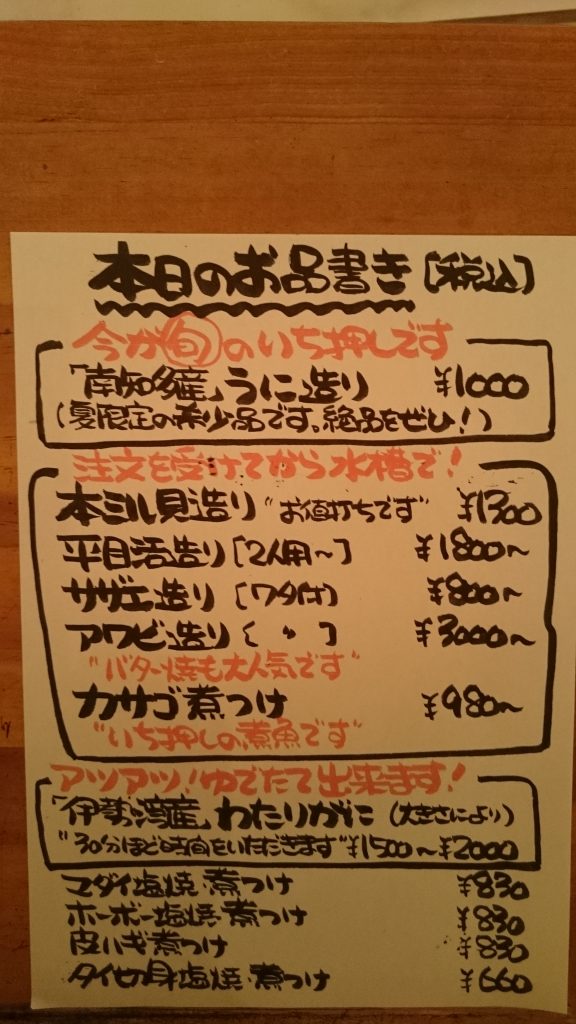 本日のお品書き [税込]
今が旬のいち押しです
「南知多産」うに造り ¥1000
(夏限定の希少品です。絶品をぜひ!)
注文を受けてから水槽で!
本ミル貝造り "お値打ちです" ¥1300
平目活造り [2人用〜] ¥1800〜
サザエ造り (ワタ付) ¥800〜
アワビ造り ( 〃 ) ¥3000〜
"バター焼も大人気です"
カサゴ煮つけ ¥980〜
"いち押しの煮魚です"
アツアツ!ゆでたて出来ます!
「伊勢湾産」わたりがに (大きさにより)
"30分ほど時間をいただきます" ¥1500〜¥2000
マダイ塩焼・煮つけ ¥830
ホーボー塩焼・煮つけ ¥830
皮ハギ煮つけ ¥830
タイ切身塩焼・煮つけ ¥660